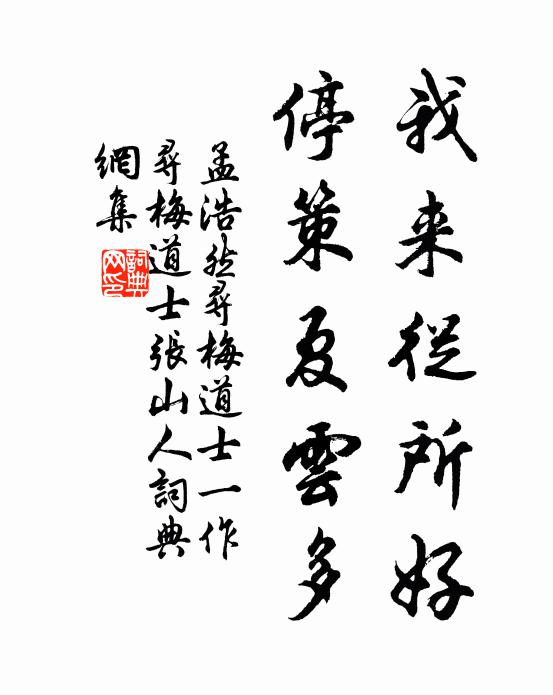 我来從所好
停策夏雲多
孟浩然尋梅道士一作
尋梅道士張山人詞典
網集
詞典
网印